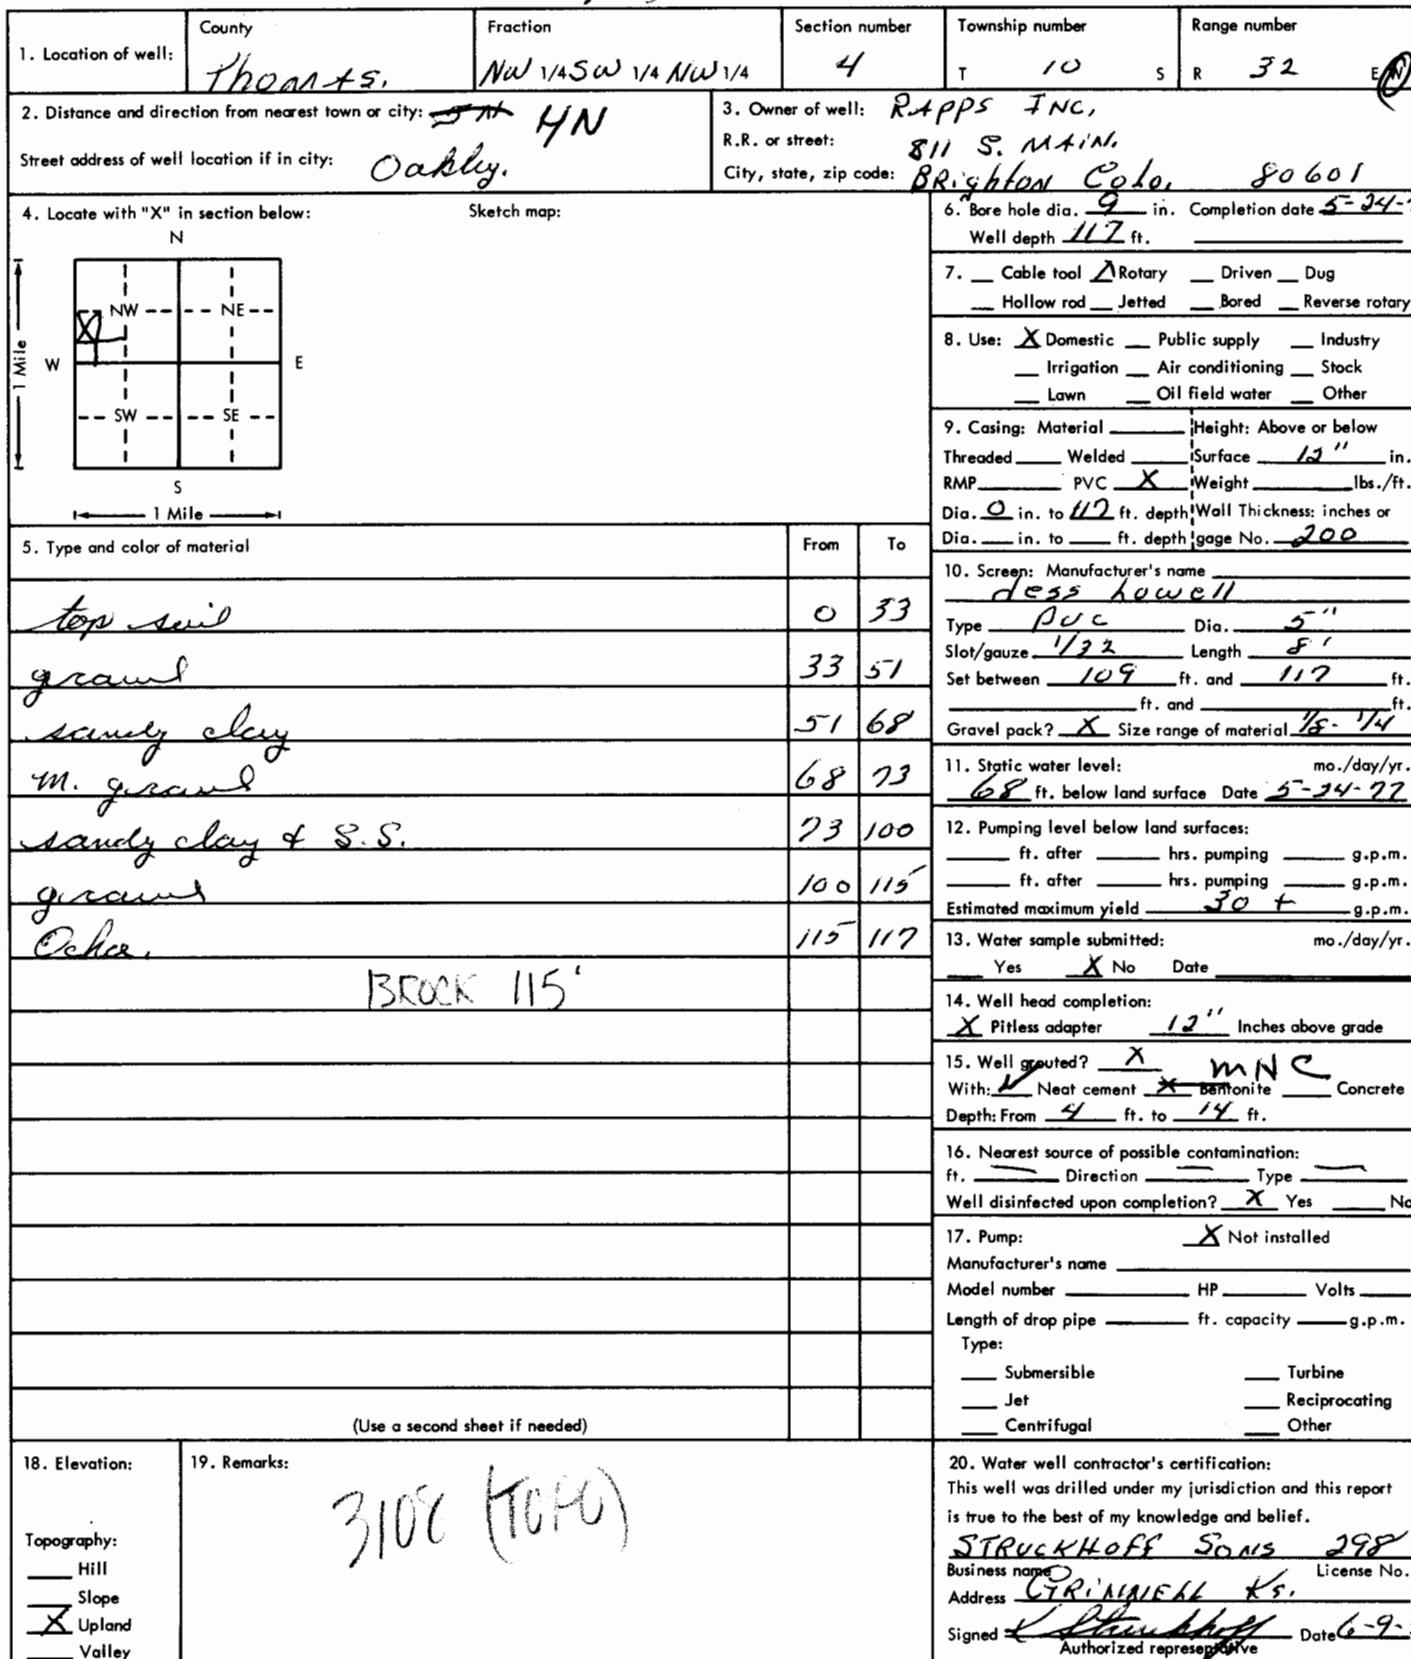 1. Location of well: County Thomas. Fraction NW 1/4 SW 1/4 NW 1/4 Section number 4 Township number T 10 S Range number R 32 E W
2. Distance and direction from nearest town or city: 4N
Street address of well location if in city: Oakley.
3. Owner of well: RAPPS INC.
R.R. or street: 811 S. MAIN.
City, state, zip code: BRighton Colo. 80601
4. Locate with "X" in section below: Sketch map:
N
NW NE
W E
X
SW SE
S
1 Mile
1 Mile
5. Type and color of material From To
top soil 0 33
gravel 33 51
sandy clay 51 68
m. gravel 68 73
sandy clay & S.S. 73 100
gravel 100 115
Ochre. 115 117
BROCK 115'
(Use a second sheet if needed)
6. Bore hole dia. 9 in. Completion date 5-24-
Well depth 117 ft.
7. Cable tool X Rotary Driven Dug
Hollow rod Jetted Bored Reverse rotary
8. Use: X Domestic Public supply Industry
Irrigation Air conditioning Stock
Lawn Oil field water Other
9. Casing: Material Height: Above or below
Threaded Welded Surface 12" in.
RMP PVC X Weight lbs./ft.
Dia. 0 in. to 117 ft. depth Wall Thickness: inches or
Dia. in. to ft. depth gage No. 200
10. Screen: Manufacturer's name
dess Lowell
Type PVC Dia. 5"
Slot/gauze 1/32 Length 8'
Set between 109 ft. and 117 ft.
ft. and ft.
Gravel pack? X Size range of material 1/8 - 1/4
11. Static water level: mo./day/yr.
68 ft. below land surface Date 5-24-77
12. Pumping level below land surfaces:
ft. after hrs. pumping g.p.m.
ft. after hrs. pumping g.p.m.
Estimated maximum yield 30 + g.p.m.
13. Water sample submitted: mo./day/yr.
Yes X No Date
14. Well head completion:
X Pitless adapter 12" Inches above grade
15. Well grouted? X MNC
With: ✓ Neat cement X Bentonite Concrete
Depth: From 4 ft. to 14 ft.
16. Nearest source of possible contamination:
ft. — Direction — Type —
Well disinfected upon completion? X Yes No
17. Pump: X Not installed
Manufacturer's name
Model number HP Volts
Length of drop pipe ft. capacity g.p.m.
Type:
Submersible Turbine
Jet Reciprocating
Centrifugal Other
18. Elevation:
Topography:
Hill
Slope
X Upland
Valley
19. Remarks:
3108 (TOPO)
20. Water well contractor's certification:
This well was drilled under my jurisdiction and this report
is true to the best of my knowledge and belief.
STRUCKHOFF SONS 298
Business name License No.
Address GRINNELL Ks.
Signed Struckhoff Date 6-9-
Authorized representative